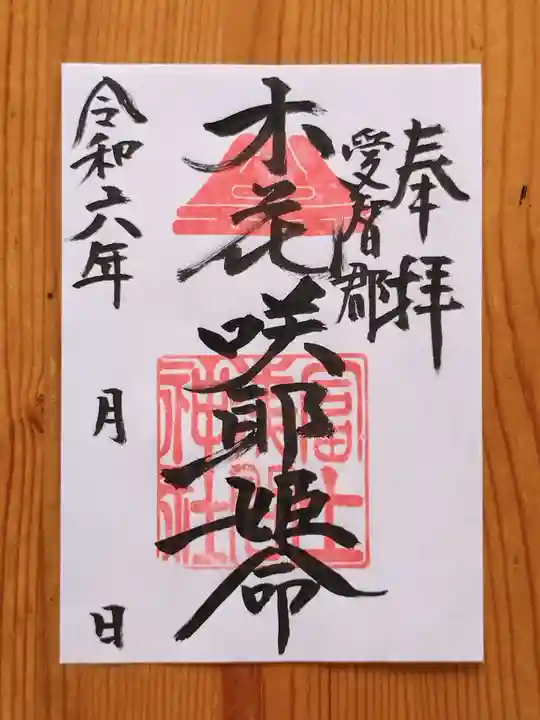 奉拝
愛宕郡
木花咲耶姫命
富士浅間神社
令和六年 月 日